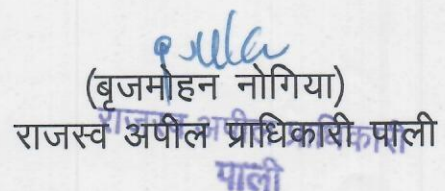 (बृजमोहन नोगिया)
राजस्व अपील प्राधिकारी पाली
राजस्व अपील प्राधिकारी
पाली